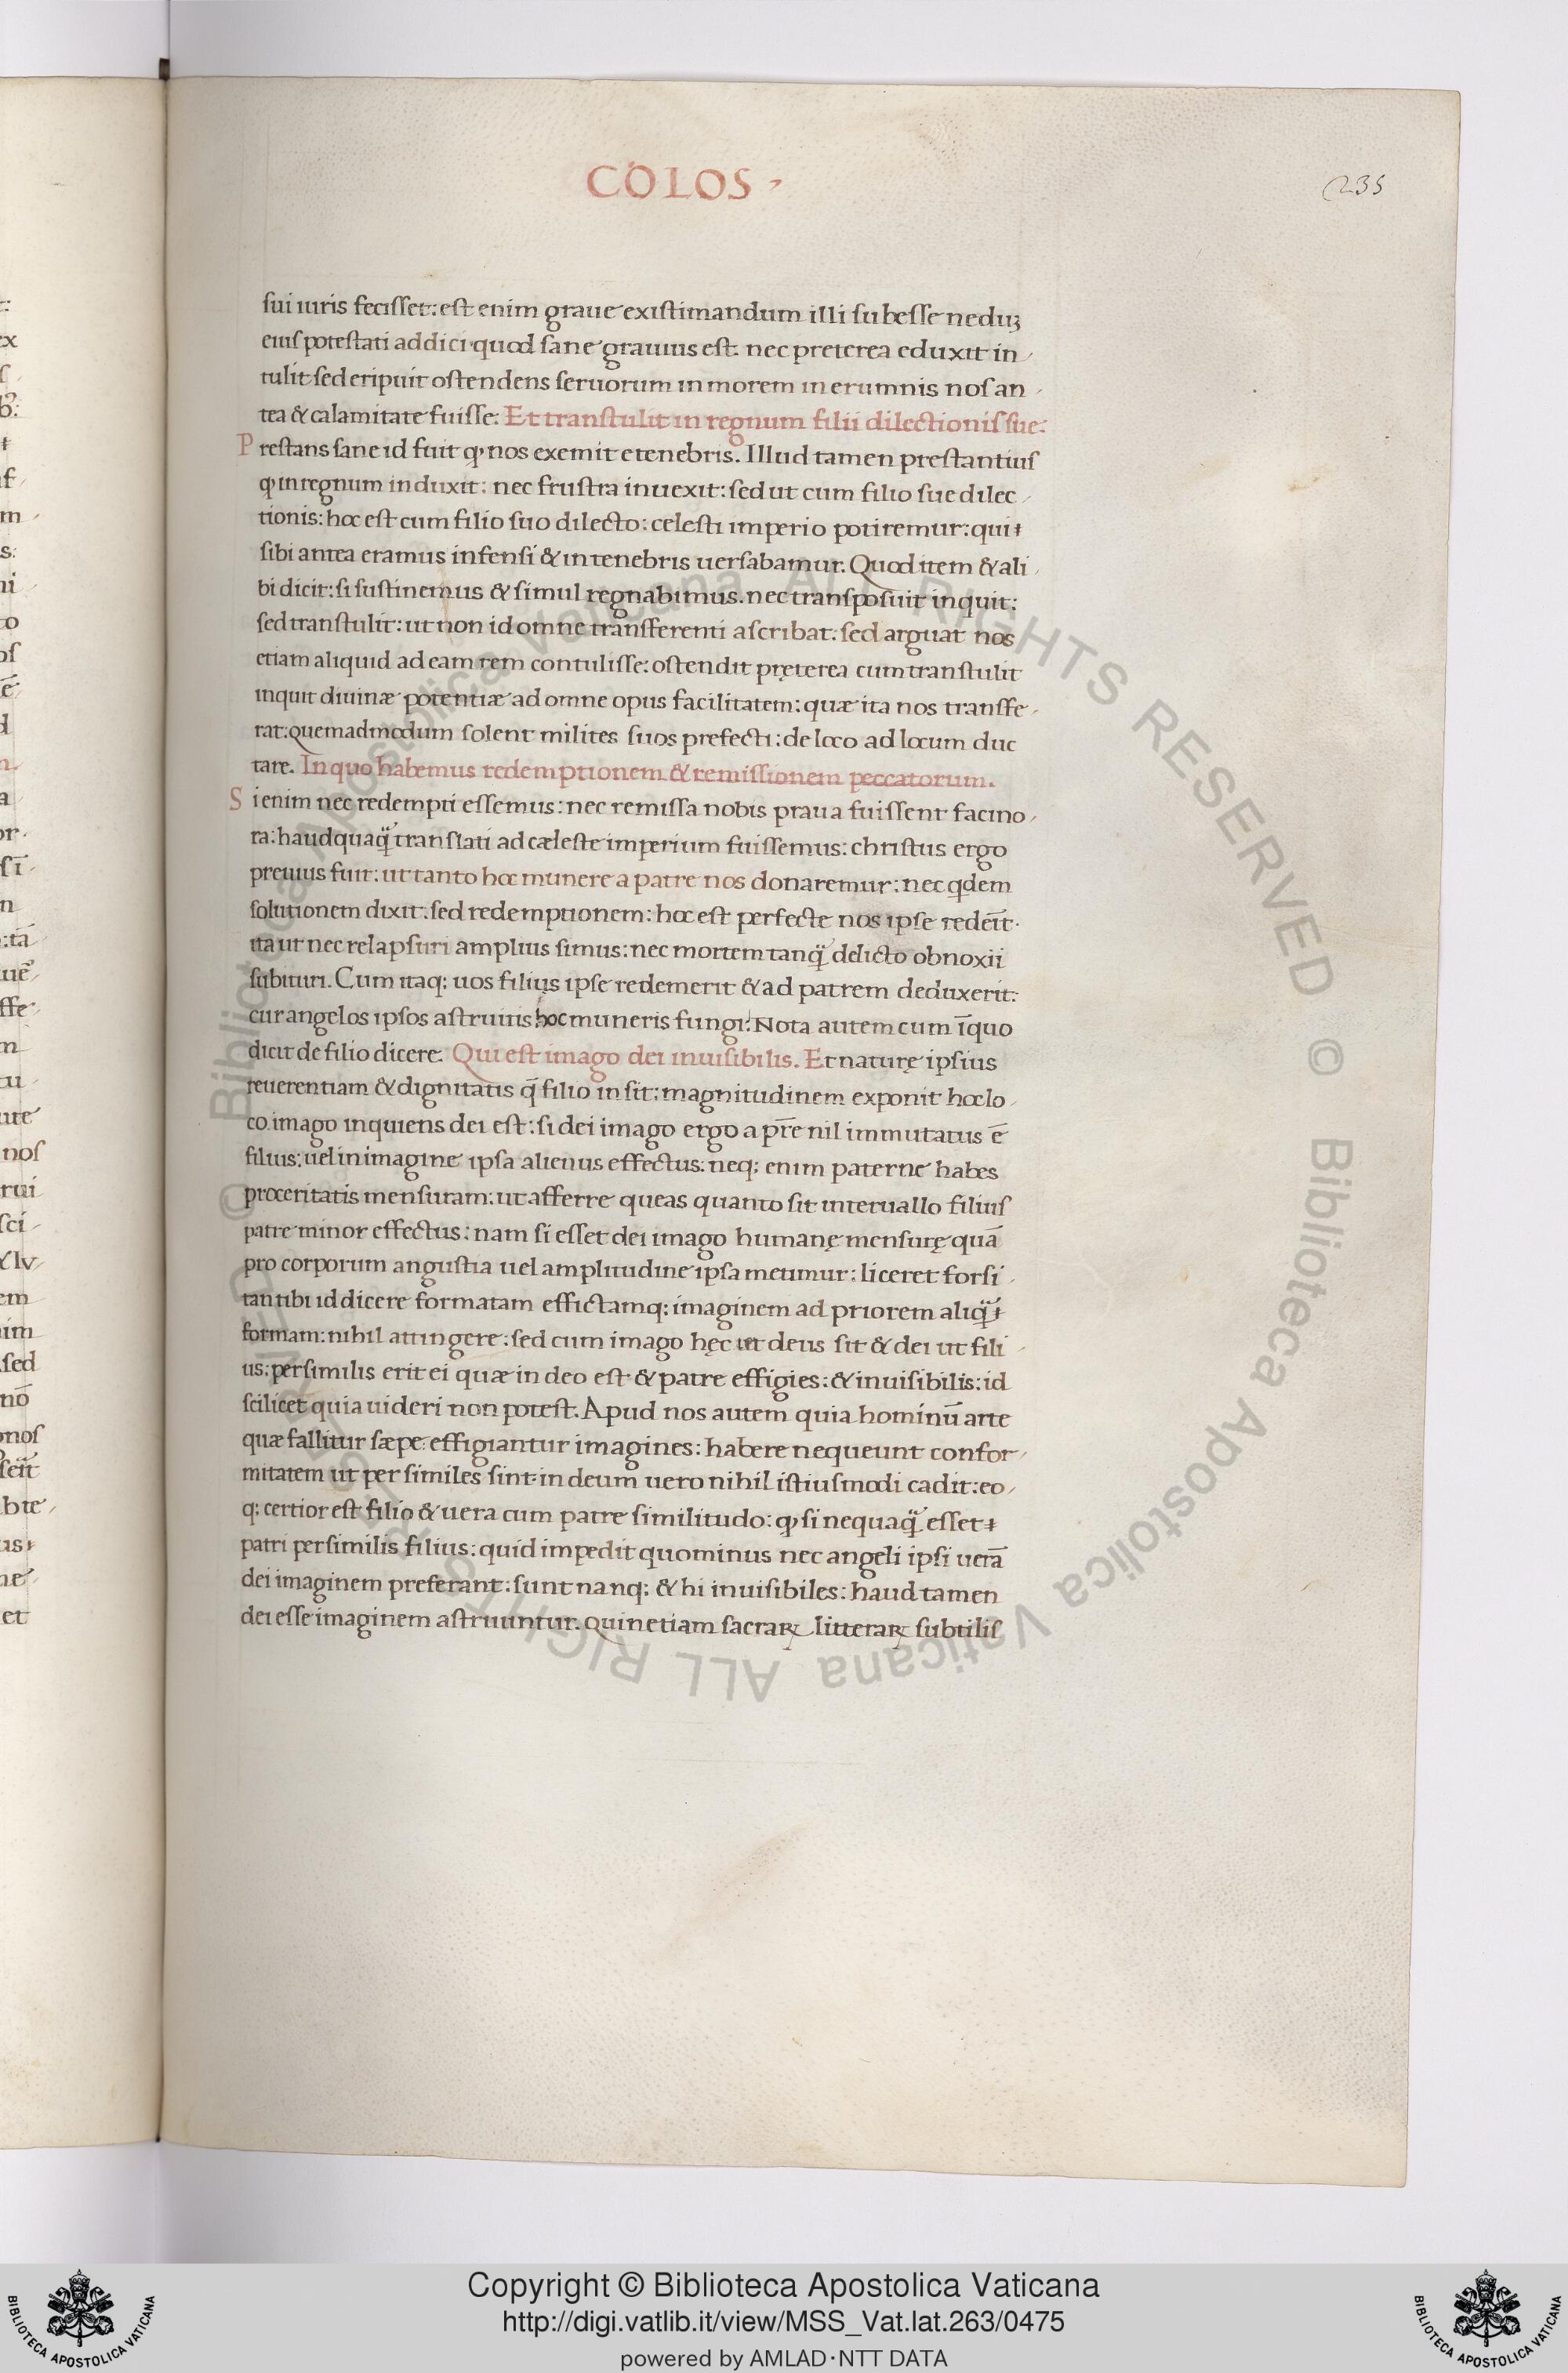 COLOS
235
sui iuris fecisset: est enim graue existimandum illi subesse neduꝫ
eius potestati addici quod sane grauius est. nec preterea eduxit in
tulit sed eripuit ostendens seruorum in morem in erumnis nos an
tea & calamitate fuisse. Et transtulit in regnum filii dilectionis sue.
Prestans sane id fuit ꝙ nos exemit e tenebris. Illud tamen prestantius
ꝙ in regnum induxit: nec frustra inuexit: sed ut cum filio sue dilec
tionis: hoc est cum filio suo dilecto: celesti imperio potiremur: qui
sibi antea eramus infensi & in tenebris uersabamur. Quod item & ali
bi dicit: si sustinemus & simul regnabimus. nec transposuit inquit:
sed transtulit: ut non id omne transferenti ascribat: sed arguat nos
etiam aliquid ad eam rem contulisse: ostendit pręterea cum transtulit
inquit diuinæ potentiæ ad omne opus facilitatem: quæ ita nos transfe
rat: quemadmodum solent milites suos prefecti: de loco ad locum duc
tare. In quo habemus redemptionem & remissionem peccatorum.
Si enim nec redempti essemus: nec remissa nobis praua fuissent facino
ra: haud quaq̃ translati ad cæleste imperium fuissemus: christus ergo
preuius fuit: ut tanto hoc munere a patre nos donaremur: nec qdem
solutionem dixit. sed redemptionem: hoc est perfecte nos ipse redeīt
ita ut nec relapsuri amplius simus: nec mortem tanq̃ delicto obnoxii
subituri. Cum itaq; uos filius ipse redemerit & ad patrem deduxerit:
cur angelos ipsos astruitis hoc muneris fungi. Nota autem cum īquo
dicit de filio dicere. Qui est imago dei inuisibilis. Et naturę ipsius
reuerentiam & dignitatis q̄ filio insit: magnitudinem exponit hoc lo
co. imago inquiens dei est: si dei imago ergo a pr̄e nil immutatus ē
filius: uel in imagine ipsa alienus effectus: neq; enim paterne habes
proceritatis mensuram: ut afferre queas quanto sit interuallo filius
patre minor effectus: nam si esset dei imago humanę mensurę quā
pro corporum angustia uel amplitudine ipsa metimur: liceret forsi
tan tibi id dicere formatam effictamq; imaginem ad priorem aliq̃
formam: nihil attingere: sed cum imago hęc ut deus sit & dei ut fili
us: persimilis erit ei quæ in deo est & patre effigies: & inuisibilis: id
scilicet quia uideri non potest. Apud nos autem quia hominū arte
quæ fallitur sæpe: effigiantur imagines: habere nequeunt confor
mitatem ut per similes sint: in deum uero nihil istiusmodi cadit: eo
q; certior est filio & uera cum patre similitudo: ꝙ si nequaq̃ esset
patri persimilis filius: quid impedit quominus nec angeli ipsi uerā
dei imaginem preferant: sunt nanq; & hi inuisibiles: haud tamen
dei esse imaginem astruuntur. Quinetiam sacraꝝ litteraꝝ subtilis
Copyright © Biblioteca Apostolica Vaticana
http://digi.vatlib.it/view/MSS_Vat.lat.263/0475
powered by AMLAD·NTT DATA